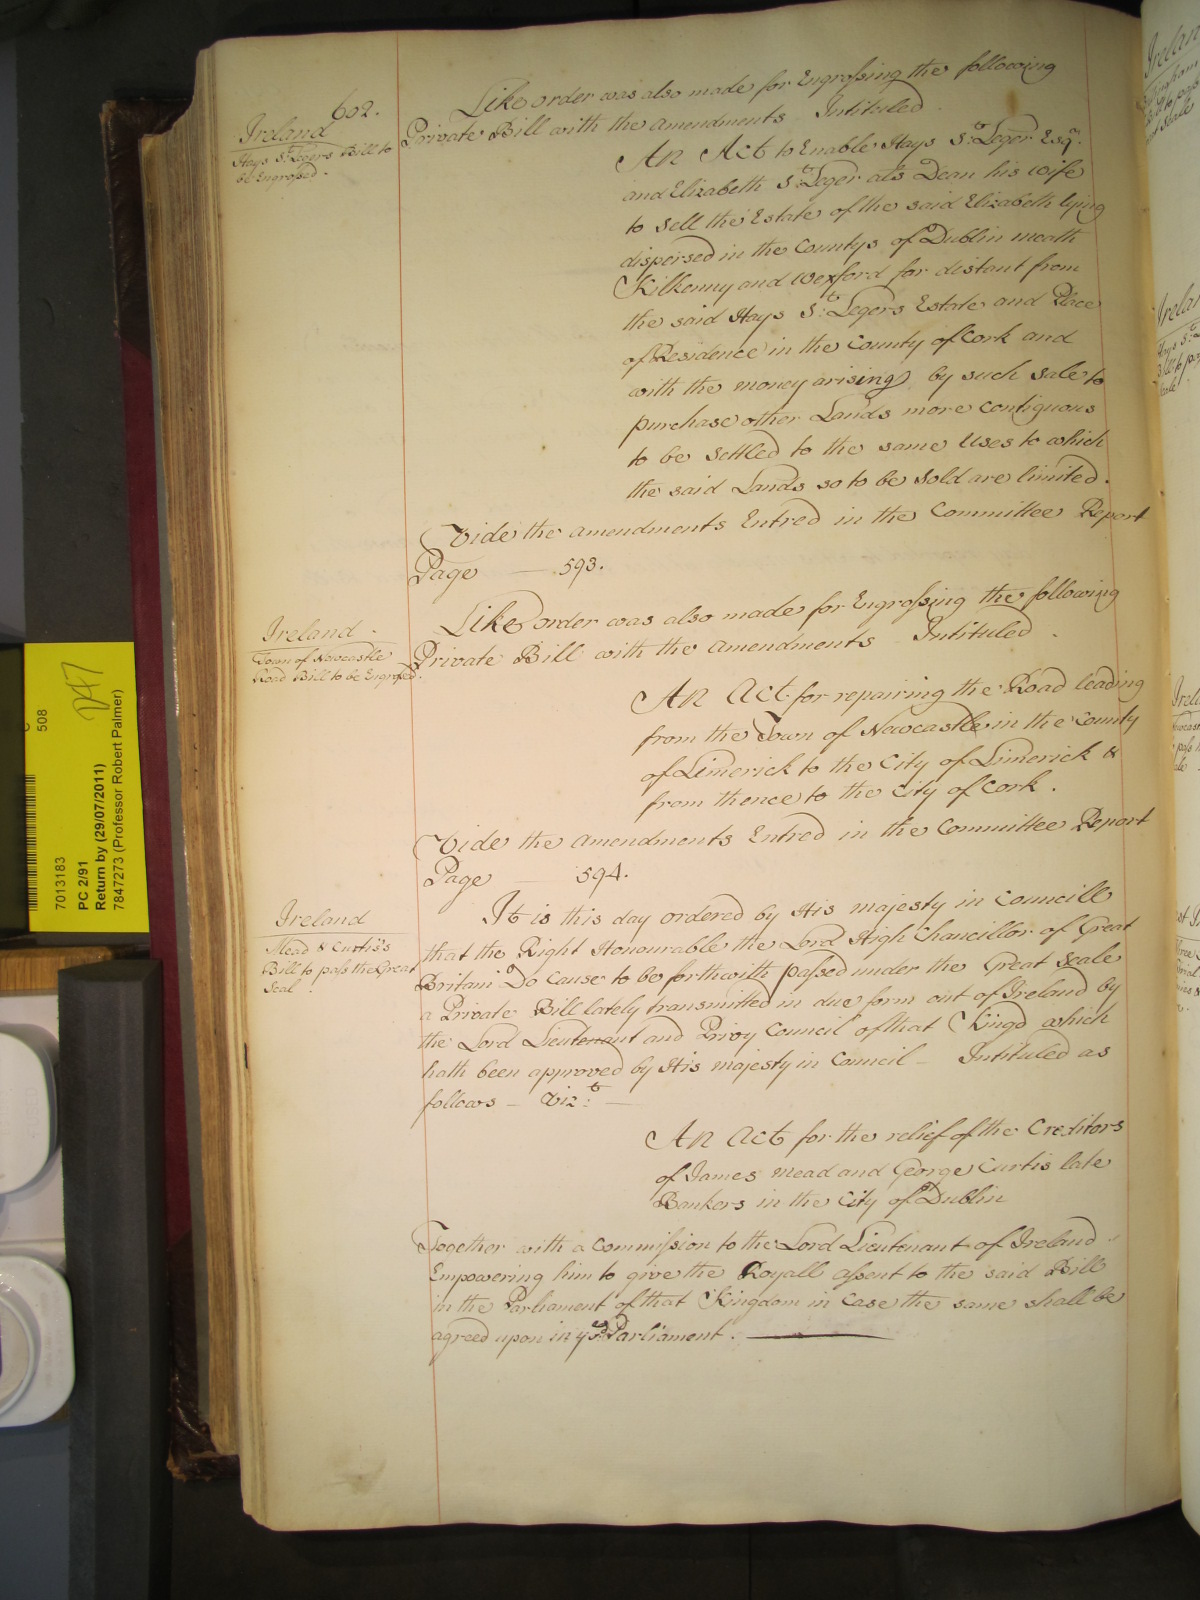 602.
Ireland
Hays St. Legers Bill to
be Engrossed.
Like order was also made for Engrossing the following
Private Bill with the amendments Intituled
An Act to Enable Hays St. Leger Esqr.
and Elizabeth St. Leger als Dean his wife
to sell the Estate of the said Elizabeth lying
dispersed in the Countys of Dublin meath
Kilkenny and wexford far distant from
the said Hays St. Legers Estate and Place
of Residence in the County of Cork and
with the money arising by such sale to
purchase other Lands more contiguous
to be settled to the same Uses to which
the said Lands so to be sold are limited.
Vide the amendments Entred in the Committee Report
Page — 593.
Ireland
Town of Newcastle
Road Bill to be Engrossed.
Like order was also made for Engrossing the following
Private Bill with the amendments Intituled
An Act for repairing the Road leading
from the Town of Newcastle in the County
of Limerick to the City of Limerick &
from thence to the City of Cork.
Vide the amendments Entred in the Committee Report
Page — 594.
Ireland
Mead & Curtis's
Bill to pass the Great
Seal.
It is this day ordered by His majesty in Councill
that the Right Honourable the Lord High Chancillor of Great
Britain Do Cause to be forthwith passed under the Great Seale
a Private Bill lately transmitted in due form out of Ireland by
the Lord Lieutenant and Privy Council of that Kingd which
hath been approved by His majesty in Council — Intituled as
follows — Vizt: —
An Act for the relief of the Creditors
of James mead and George Curtis late
Bankers in the City of Dublin
Together with a Commission to the Lord Lieutenant of Ireland
Empowering him to give the Royall assent to the said Bill
in the Parliament of that Kingdom in Case the same shall be
agreed upon in ye sd Parliament.
508
7013183
PC 2/91
Return by (29/07/2011)
7847273 (Professor Robert Palmer)